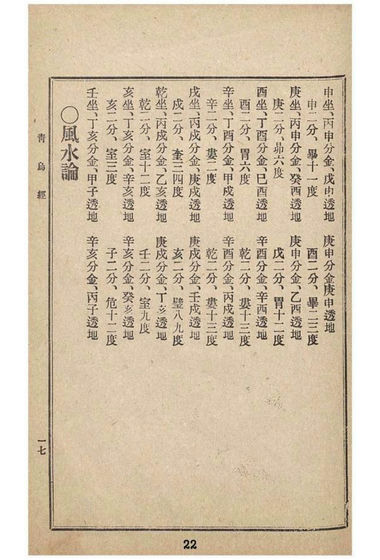 申坐、丙申分金、戊申透地　庚申分金庚申透地
申二分、畢十一度　酉二分、畢二三度
庚坐、丙申分金、癸酉透地　庚申分金、乙酉透地
庚二分、昴六度　戊二分、胃十二度
酉坐、丁酉分金、已酉透地　辛酉分金、辛酉透地
酉二分、胃六度　乾二分、婁十三度
辛坐、丁酉分金、甲戌透地　辛酉分金、丙戌透地
辛二分、婁二度　乾二分、婁十三度
戌坐、丙戌分金、庚戌透地　庚戌分金、壬戌透地
戌二分、奎三四度　亥二分、壁八九度
乾坐、丙戌分金、乙亥透地　庚戌分金、丁亥透地
乾二分、室十二度　壬二分、室九度
亥坐、丁亥分金、辛亥透地　辛亥分金、癸亥透地
亥二分、室三度　子二分、危十二度
壬坐、丁亥分金、甲子透地　辛亥分金、丙子透地
〇風水論
青島經
一七
22